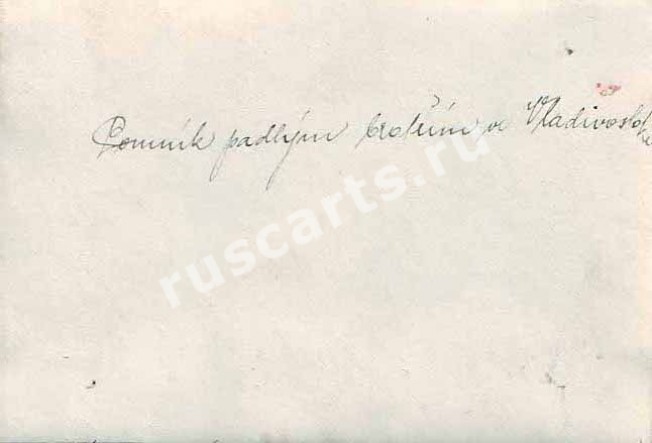 Pomník padlým bratřím ve Vladivostoku
ruscarts.ru